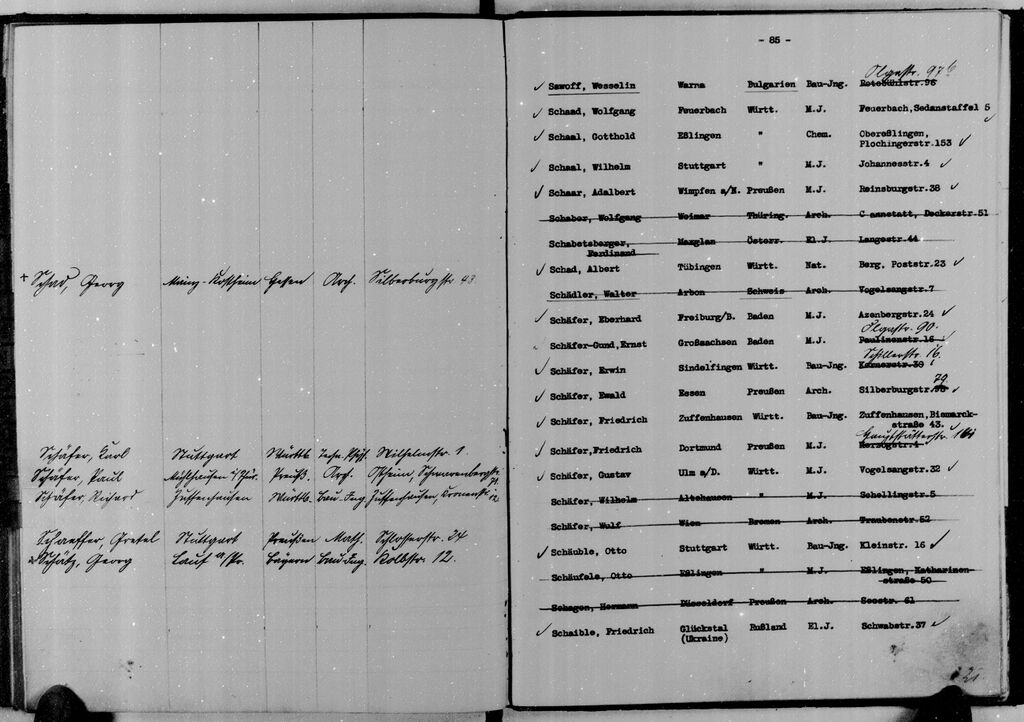 + Schad, Georg Mainz-Kostheim Hessen Arch. Silberburgstr. 43
Schäfer, Karl Stuttgart Württb. Wilhelmstr. 1.
Schäfer, Paul Mühlhausen i/Thür. Preuß. Arch.
Schäfer, Richard Zuffenhausen Württb. Bau-Ing. Zuffenhausen
Schaeffer, Gretel Stuttgart Preußen Math. Schloßerstr. 24
Schätz, Georg Lauf a/P. Bayern Bau-Ing. Kolbstr. 12.
- 85 -
Olgastr. 97 b
✓ Sawoff, Wesselin Warna Bulgarien Bau-Jng. Rotebühlstr.96
✓ Schaad, Wolfgang Feuerbach Württ. M.J. Feuerbach, Sedanstaffel 5 ✓
✓ Schaal, Gotthold Eßlingen " Chem. Obereßlingen,
Plochingerstr.153 ✓
✓ Schaal, Wilhelm Stuttgart " M.J. Johannesstr.4 ✓
✓ Schaar, Adalbert Wimpfen a/N. Preußen M.J. Reinsburgstr.38 ✓
Schaber, Wolfgang Weimar Thüring. Arch. Cannstatt, Deckerstr.51
Schabetsberger, Maxglan Österr. El.J. Langestr.44
Ferdinand
✓ Schad, Albert Tübingen Württ. Nat. Berg, Poststr.23 ✓
Schädler, Walter Arbon Schweiz Arch. Vogelsangstr.7
✓ Schäfer, Eberhard Freiburg/B. Baden M.J. Azenbergstr.24 ✓
Olgastr. 90.
Schäfer-Gund, Ernst Großsachsen Baden M.J. Paulinenstr.16 ✓
Schillerstr. 16.
✓ Schäfer, Erwin Sindelfingen Württ. Bau-Jng. Kernerstr.39
79
✓ Schäfer, Ewald Essen Preußen Arch. Silberburgstr. ✓
✓ Schäfer, Friedrich Zuffenhausen Württ. Bau-Jng. Zuffenhausen, Bismarck-
straße 43. ✓
Hauptstätterstr.
✓ Schäfer, Friedrich Dortmund Preußen M.J. Herzogstr.4
✓ Schäfer, Gustav Ulm a/D. Württ. M.J. Vogelsangstr.32 ✓
Schäfer, Wilhelm Altshausen " M.J. Schellingstr.5
Schäfer, Wulf Wien Bremen Arch. Traubenstr.52
✓ Schäuble, Otto Stuttgart Württ. Bau-Jng. Kleinstr. 16 ✓
Schäufele, Otto Eßlingen " M.J. Eßlingen, Katharinen-
straße 50
Schagen, Hermann Düsseldorf Preußen Arch. Seestr. 61
✓ Schaible, Friedrich Glückstal Rußland El.J. Schwabstr.37 ✓
(Ukraine)